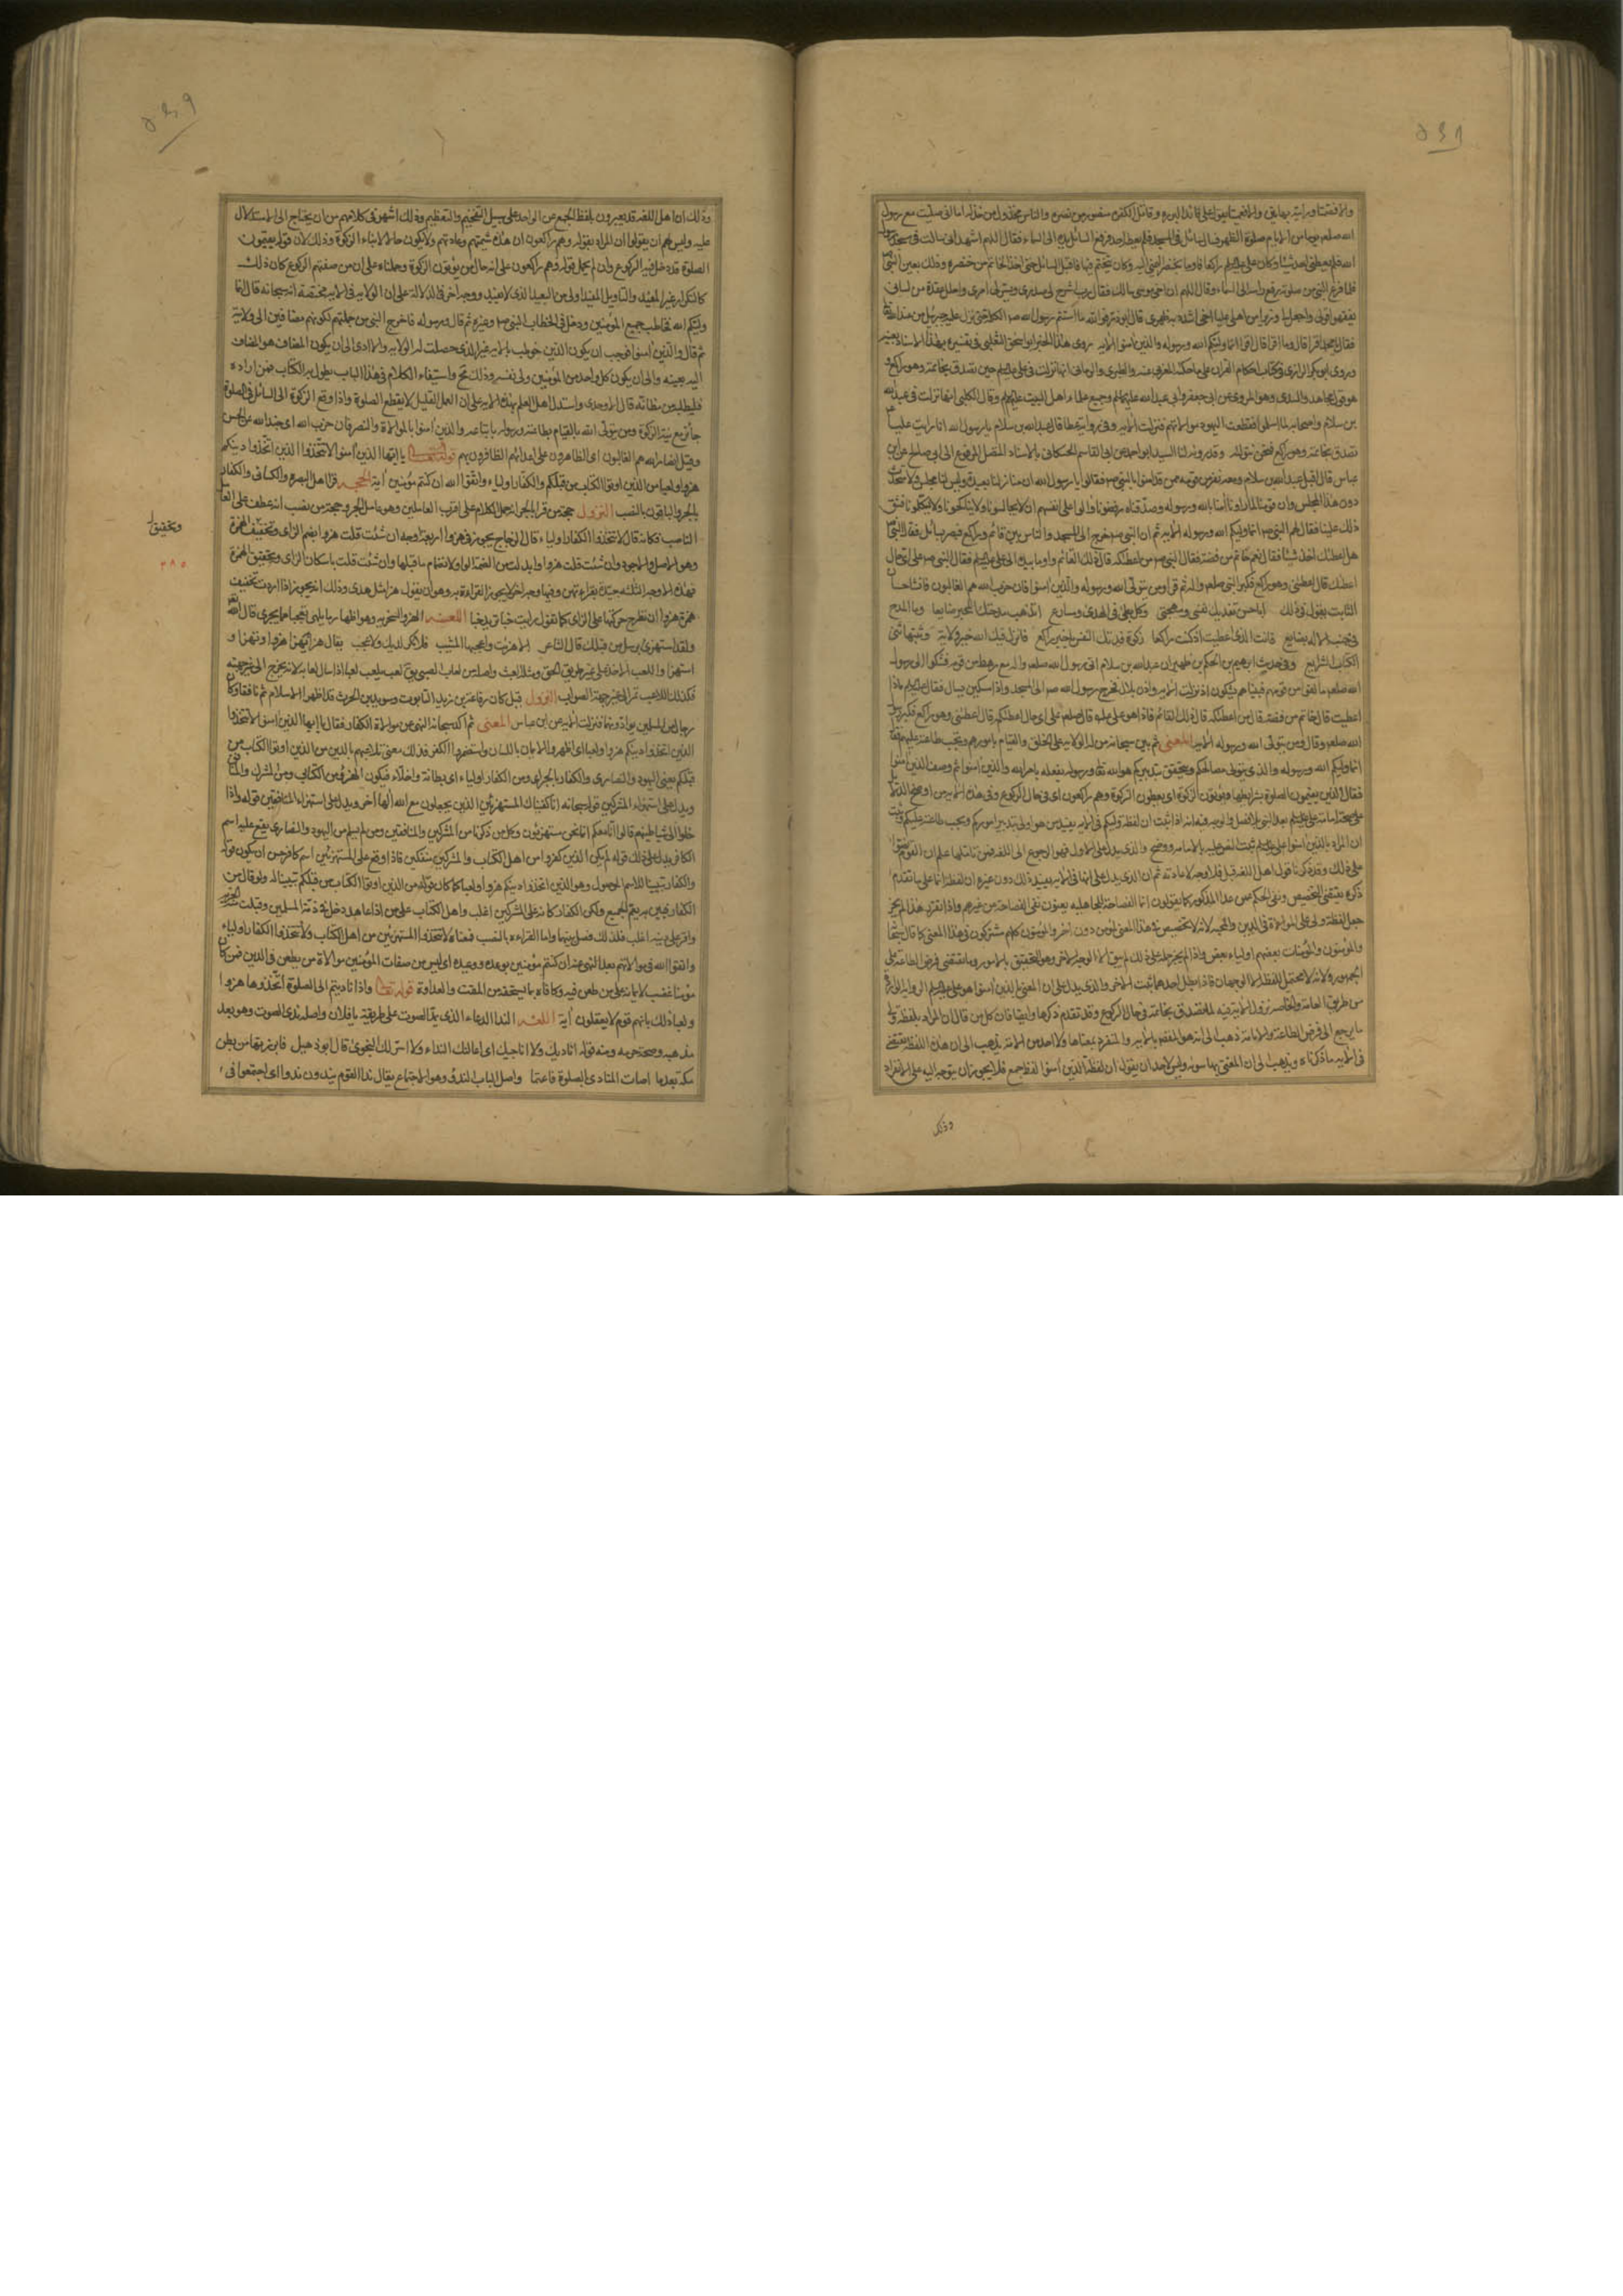 ٥٤٨
والا فصمتا ورأيته بهاتين والا فعميتا يقول على قائد البررة وقاتل الكفرة منصور من نصره مخذول من خذله اما انى صليت مع رسول
الله صلعم يوما من الايام صلوة الظهر فسال سائل فى المسجد فلم يعطه احد فرفع السائل يده الى السماء فقال اللهم اشهد انى سالت فى مسجد رسول
الله فلم يعطنى احد شيئا وكان على راكعا فاومأ بخنصره اليمنى اليه وكان يتختم فيها فاقبل السائل حتى اخذ الخاتم من خنصره وذلك بعين النبى
فلما فرغ النبى من صلوته رفع راسه الى السماء وقال اللهم ان اخى موسى سالك فقال رب اشرح لى صدرى ويسر لى امرى واحلل عقدة من لسانى
يفقهوا قولى واجعل لى وزيرا من اهلى عليا اخى اشدد به ظهرى قال ابوذر فوالله ما استتم رسول الله الكلمة حتى نزل عليه جبرئيل من عند الله
فقال يا محمد اقرا قال وما اقرا قال اقرا انما وليكم الله ورسوله والذين امنوا الايه روى هذا الخبر ابو اسحق الثعلبى فى تفسيره بهذا الاسناد بعينه
وروى ابو بكر الرازى فى كتاب احكام القران على ما حكاه المغربى عنه والطبرى والرمانى انها نزلت فى على حين تصدق بخاتمه وهو راكع و
هو قول مجاهد والسدى وهو المروى عن ابى جعفر وابى عبد الله وجميع علماء اهل البيت وقال الكلبى انها نزلت فى عبد الله
بن سلام واصحابه لما اسلموا فقطعت اليهود موالاتهم فنزلت الايه وفى رواية عطا قال عبد الله بن سلام يا رسول الله انا رايت عليا
تصدق بخاتمه وهو راكع فنحن نتولاه وقد رواه لنا السيد ابو الحمد عن ابى القاسم الحسكانى بالاسناد المتصل المرفوع الى ابى صالح عن ابن
عباس قال اقبل عبد الله بن سلام ومعه نفر من قومه ممن قد امنوا بالنبى فقالوا يا رسول الله ان منازلنا بعيدة وليس لنا مجلس ولا متحدث
دون هذا المجلس وان قومنا لما راونا امنا بالله ورسوله وصدقناه رفضونا والوا على انفسهم ان لا يجالسونا ولا يناكحونا ولا يكلمونا فشق
ذلك علينا فقال لهم النبى انما وليكم الله ورسوله الايه ثم ان النبى خرج الى المسجد والناس بين قائم وراكع فبصر بسائل فقال النبى
هل اعطاك احد شيئا فقال نعم خاتم من فضة فقال النبى من اعطاكه قال ذلك القائم واوما بيده الى على فقال النبى على اى حال
اعطاك قال اعطانى وهو راكع فكبر النبى صلعم ثم قرا ومن يتول الله ورسوله والذين امنوا فان حزب الله هم الغالبون فانشا حسان
الثابت يقول فى ذلك ابا حسن تفديك نفسى ومهجتى وكل بطئ فى الهدى ومسارع ايذهب مدحتك المحبر ضايعا وما المدح
فى جنب الاله بضايع فانت الذى اعطيت اذ كنت راكعا زكوة فدتك النفس يا خير راكع فانزل فيك الله خير ولاية وثبتها مثنى
الكتاب الشرايع وفى حديث ابراهيم بن الحكم بن ظهير ان عبد الله بن سلام اتى رسول الله صلعم مع رهط من قومه فشكوا الى رسول
الله صلعم ما لقوا من قومهم فبيناهم يشكون اذ نزلت الايه واذن بلال فخرج رسول الله الى المسجد واذا مسكين يسال فقال ماذا
اعطيت قال خاتم من فضة قال من اعطاكه قال ذلك القائم فاذا هو على قال على اى حال اعطاكه قال اعطانى وهو راكع فكبر رسول
الله صلعم وقال ومن يتول الله ورسوله الايه المعنى ثم بين سبحانه من له الولاية على الخلق والقيام بامورهم وتجب طاعته عليهم فقال
انما وليكم الله ورسوله والذى يتولى مصالحكم ويتحقق تدبيركم هو الله تعالى ورسوله يفعله بامر الله والذين امنوا ثم وصف الذين امنوا
فقال الذين يقيمون الصلوة بشرايطها ويؤتون الزكوة اى يعطون الزكوة وهم راكعون اى فى حال الركوع وفى هذه الايه من اوضح الدلالة
على صحة امامة على بعد النبى بلا فصل والوجه فيه انه اذا ثبت ان لفظة وليكم فى الايه يفيد من هو اولى بتدبير اموركم ويجب طاعته عليكم وثبت
ان المراد بالذين امنوا على ثبت النص عليه بالامامه ووضح والذى يدل على الاول فهو الرجوع الى اللغة فمن تاملها علم ان القوم نصوا
على ذلك وقد ذكرنا قول اهل اللغة قبل فلا وجه لاعادته ثم ان الذى يدل على انها فى الايه يفيد ذلك دون غيره ان لفظة انما على ما تقدم
ذكره يقتضى التخصيص ونفى الحكم عمن عدا المذكور كما يقولون انما الفصاحة للجاهليه يعنون نفى الفصاحة عن غيرهم واذا تقرر هذا لم يجز
حمل لفظة ولى على الموالاة فى الدين والمحبه لانه لا تخصيص فى هذا المعنى لمؤمن دون اخر والمؤمنون كلهم مشتركون فى هذا المعنى كما قال سبحانه
والمؤمنون والمؤمنات بعضهم اولياء بعض واذا لم يجز حمله على ذلك لم يبق الا الوجه الاخر وهو التحقيق بالامور وما يقتضى فرض الطاعة على
الجمهور ولانه لا محتمل للفظه الا الوجهان فاذا بطل احدهما ثبت الاخر والذى يدل على ان المعنى بالذين امنوا هو على الروايه الواردة
من طريق العامة والخاصه بنزول الايه فيه لما تصدق بخاتمه فى حال الركوع وقد تقدم ذكرها وايضا فان كل من قال ان المراد بلفظة ولى
ما يرجع الى فرض الطاعة والامامة ذهب الى انه هو المقصود بالايه والمتفرد بمعناها ولا احد من الامة يذهب الى ان هذه اللفظه يقتضى
فى الايه ما ذكرناه ويذهب الى ان المعنى بها سواه وليس لاحد ان يقول ان لفظة الذين امنوا لفظ جمع فلا يجوز ان يتوجه اليه على الانفراد
وذلك
٥٤٩
وذلك ان اهل اللغه قد يعبرون بلفظ الجمع عن الواحد على سبيل التفخيم والتعظيم وذلك اشهر فى كلامهم من ان يحتاج الى الاستدلال
عليه وليس لهم ان يقولوا ان المراد بقوله وهم راكعون ان هذه شيمتهم وعادتهم ولا يكون حالا لايتاء الزكوة وذلك لان قوله يقيمون
الصلوة قد دخل فيه الركوع وان لم يحمل قوله وهم راكعون على انه حال من يؤتون الزكوة وحملناه على ان من صفتهم الركوع كان ذلك
كالتكرار غير المفيد والتاويل المفيد اولى من البعيد الذى لا يفيد ووجه اخر فى الدلالة على ان الولايه فى الايه مختصة انه سبحانه قال انما
وليكم الله فخاطب جميع المؤمنين ودخل فى الخطاب النبى وغيره ثم قال ورسوله فاخرج النبى من جملتهم لكونهم مضافين الى ولايته
ثم قال والذين امنوا فوجب ان يكون الذين خوطب بالايه غير الذى حصلت له الولايه والا ادى الى ان يكون المضاف هو المضاف
اليه بعينه والى ان يكون كل واحد من المؤمنين ولى نفسه وذلك مح واستيفاء الكلام فى هذا الباب يطول به الكتاب فمن اراده
فليطلبه من مظانه قال الواحدى واستدل اهل العلم بهذه الايه على ان العمل القليل لا يقطع الصلوة واذا وقع الزكوة الى السائل فى الصلوة
جائز مع نية الزكوة ومن يتولى الله بالقيام بطاعته ورسوله باتباعه والذين امنوا بالموالاة والنصر فان حزب الله اى جند الله عن الحسن
وقيل انصار الله هم الغالبون اى الظاهرون على اعدائهم الظافرون بهم قوله تعالى يا ايها الذين امنوا لا تتخذوا الذين اتخذوا دينكم
هزوا ولعبا من الذين اوتوا الكتاب من قبلكم والكفار اولياء واتقوا الله ان كنتم مؤمنين اية الحجه قرا اهل البصره والكسائى والكفار
بالجر والباقون بالنصب النزول حجة من قرا بالجر انه حمل الكلام على اقرب العاملين وهو عامل الجر وحجة من نصب انه عطف على العامل
الناصب فكانه قال لا تتخذوا الكفار اولياء قال الزجاج يجوز فى هزوا اربعة اوجه ان شئت قلت هزؤا بضم الزاى وتخفيف الهمزة
وتحقيق
وهو الاصل والاجود وان شئت قلت هزوا وابدلت من الهمزة الواو لانضمام ما قبلها وان شئت قلت باسكان الزاى وتحقيق الهمزة
٣٨٥
فهذه الاوجه الثلثه جيدة يقرا بهن وفيها وجه اخر لا يجوز القراءة به وهو ان يقول هزا مثل هدى وذلك انه يجوز اذا اردت تخفيف
همزة هزوا ان تطرح حركتها على الزاى كما تقول رايت خبا تريد خبا اللغه الهزو السخريه وهو اظهار ما يلهى تعجبا مما يجرى قال الله تعالى
ولقد استهزئ برسل من قبلك قال الشاعر الا هزئت واعجبها المشيب فلا نكر لديك ولا عجيب يقال هزا يهزا هزوا وتهزا و
استهزا واللعب الاخذ على غير طريق الحق ومثله العبث واصله من لعاب الصبى يق لعب يلعب لعبا اذا سال لعابه لانه يخرج الى غير جهته
فكذلك اللاعب يمر الى غير جهة الصواب النزول قيل كان رفاعة بن زيد بن التابوت وسويد بن الحرث قد اظهرا الاسلام ثم نافقا وكان
رجال من المسلمين يوادونهما فنزلت الايه عن ابن عباس المعنى ثم اكد سبحانه النهى عن موالاة الكفار فقال يا ايها الذين امنوا لا تتخذوا
الذين اتخذوا دينكم هزوا ولعبا اى اظهروا الايمان باللسان واستبطنوا الكفر فذلك معنى تلاعبهم بالدين من الذين اوتوا الكتاب من
قبلكم يعنى اليهود والنصارى والكفار بالجر اى ومن الكفار اولياء اى بطانة واخلاء فيكون الهزؤ من الكتابى ومن المشرك والمنافق
ويدل على استهزاء المشركين قوله سبحانه انا كفيناك المستهزئين الذين يجعلون مع الله الها اخر ويدل على استهزاء المنافقين قوله واذا
خلوا الى شياطينهم قالوا انا معكم انما نحن مستهزؤن وكل من ذكرنا من المشركين والمنافقين ومن لم يسلم من اليهود والنصارى يقع عليه اسم
الكافر يدل على ذلك قوله لم يكن الذين كفروا من اهل الكتاب والمشركين منفكين فاذا وقع على المستهزئين اسم كافر حسن ان يكون قوله
والكفار تبيينا للاسم الموصول وهو الذين اتخذوا دينكم هزوا ولعبا كما كان قوله من الذين اوتوا الكتاب من قبلكم تبيينا له ولو قال من
الكفار فبين به لعم الجميع ولكن الكفار كانه على المشركين اغلب واهل الكتاب على من اذا عاهد دخل فى ذمة المسلمين وقبلت منه الجزيه
واقر على دينه اغلب فلذلك فصل بينهما واما القراءه بالنصب فمعناه لا تتخذوا المستهزئين من اهل الكتاب ولا تتخذوا الكفار اولياء
واتقوا الله فى موالاتهم بعد النهى عنه ان كنتم مؤمنين بوعده ووعيده اى ليس من صفات المؤمنين موالاة من يطعن فى الدين فمن كان
مؤمنا غضب لايمانه على من طعن فيه وكافاه بما يستحقه من المقت والعداوة قوله تعالى واذا ناديتم الى الصلوة اتخذوها هزوا
ولعبا ذلك بانهم قوم لا يعقلون اية اللغه الندا الدعاء الذى يمد الصوت على طريقة يا فلان واصله ندى الصوت وهو بعد
مذهبه وصحة جرمه ومنه قوله اناديك ولا اناجيك اى اعالنك النداء ولا اسر لك النجوى قال ابو دهبل فابرزتها من بطن
مكة بعدما اصات المنادى بالصلوة فاعتما واصل الباب الندو وهو الاجتماع يقال ندا القوم يندون ندوا اى اجتمعوا فى